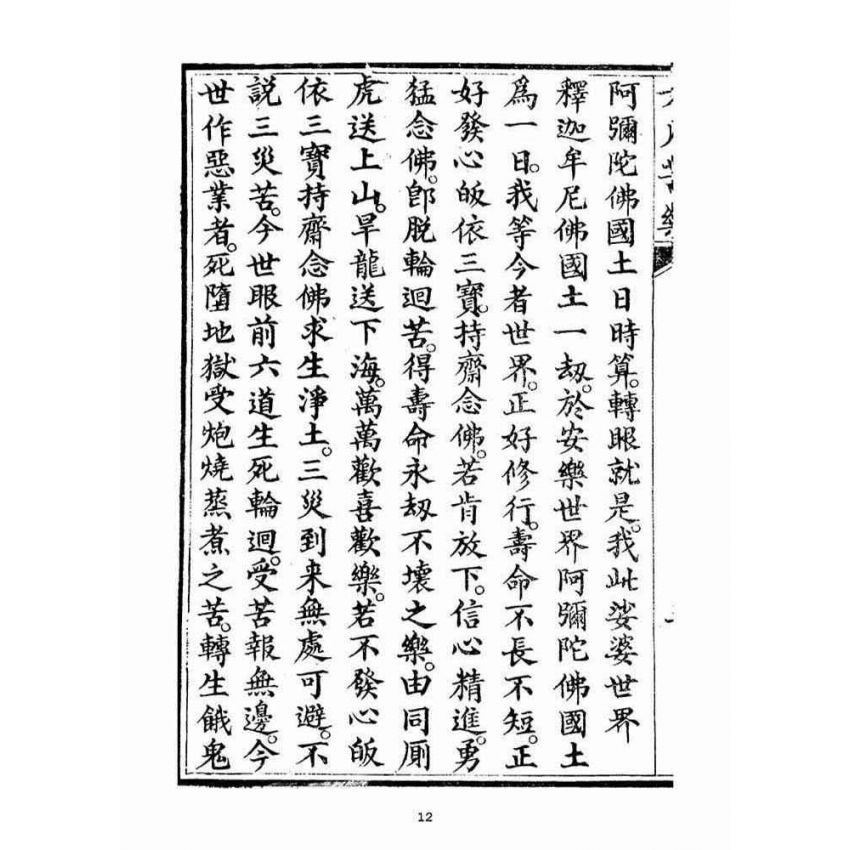 阿彌陀佛國土日時算。轉眼就是。我此娑婆世界
釋迦牟尼佛國土一刼。於安樂世界阿彌陀佛國土
爲一日。我等今者世界。正好修行。壽命不長不短。正
好發心皈依三寶。持齋念佛。若肯放下。信心精進。勇
猛念佛。卽脱輪迴苦。得壽命永刼不壞之樂。由同厠
虎送上山。旱龍送下海。萬萬歡喜歡樂。若不發心皈
依三寶持齋念佛求生淨土。三災到来無處可避。不
説三災苦。今世眼前六道生死輪迴。受苦報無邊。今
世作惡業者。死墮地獄受炮燒蒸煮之苦。轉生餓鬼
12